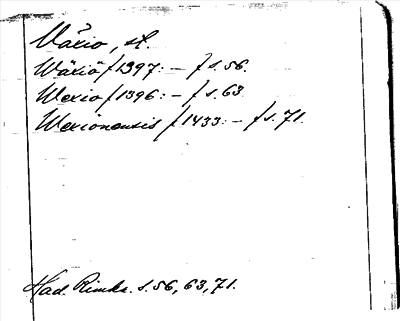 Växio, st.
Wäxiö /1397: – / s. 56.
Wexio /1396: – / s. 63
Wexionensis /1433: – / s. 71.
Had. Rimkr. s. 56, 63, 71.